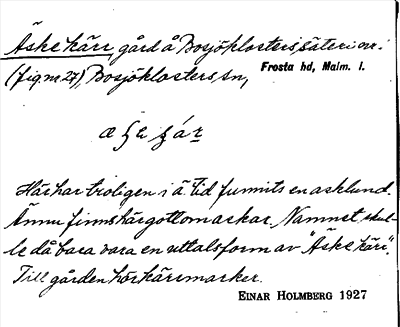 Äskekärr, gård å Bosjöklosters säteri nr.
(fig nr. 27), Bosjöklosters sn, Frosta hd, Malm. l.
Här har troligen i ä. tid funnits en asklund.
Ännu finns här gott om askar. Namnet skul-
le då bara vara en uttalsform av "Äskekärr".
Till gården hör kärrmarker.
EINAR HOLMBERG 1927